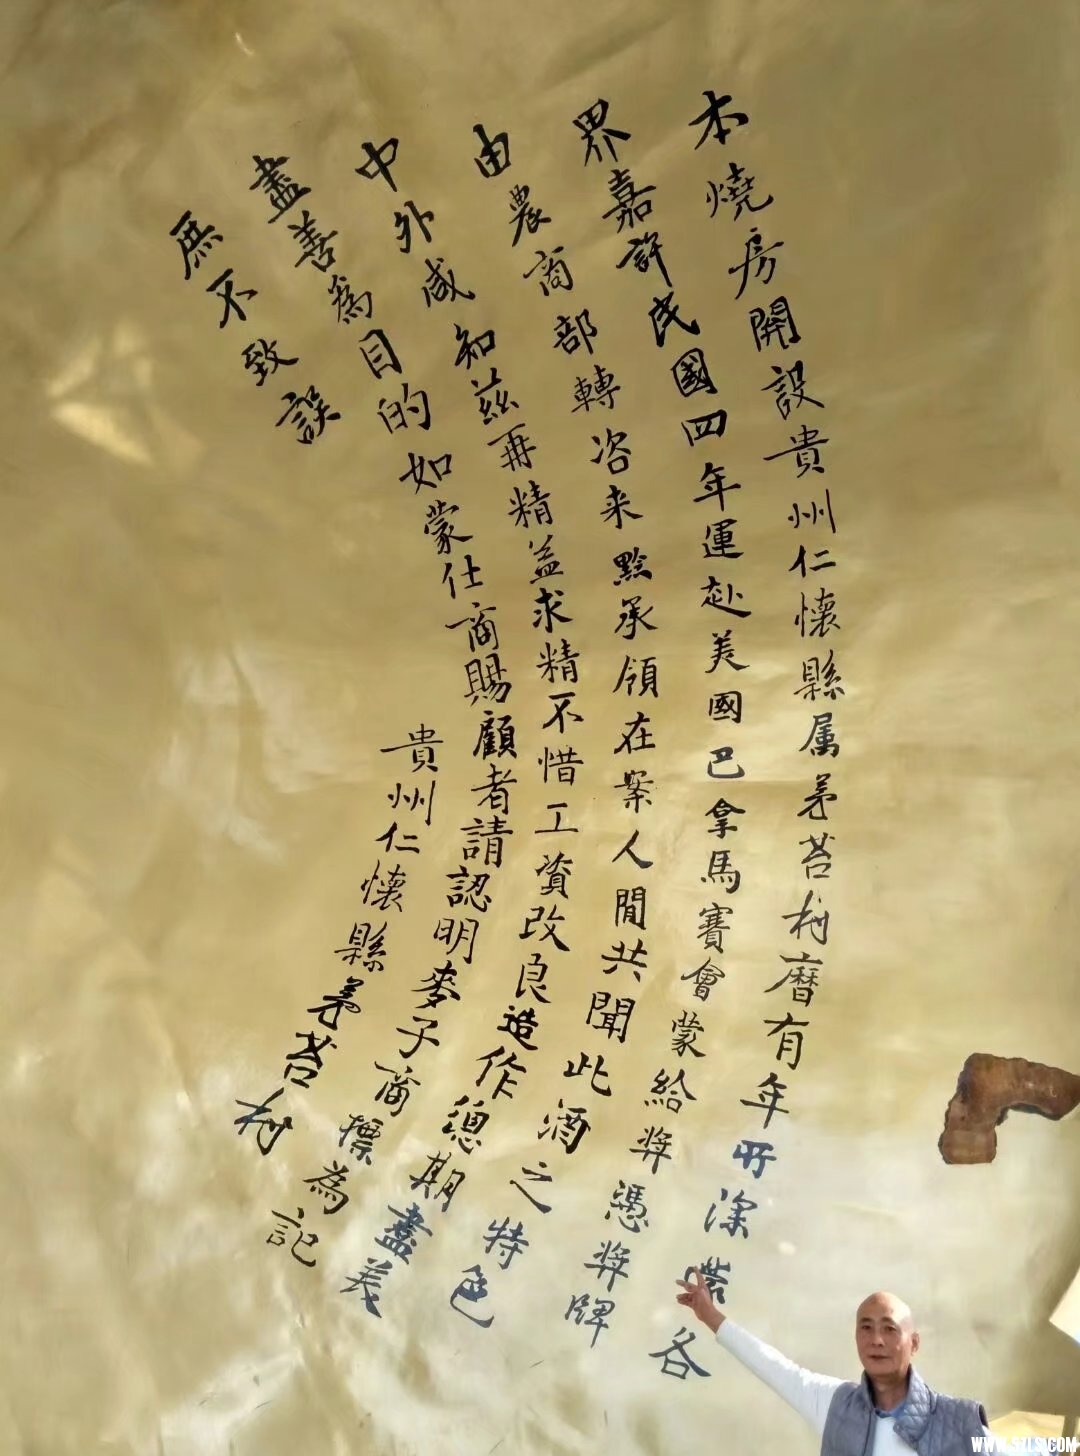 本燒房開設貴州仁懷縣属茅苔村暦有年所深各
界嘉許民國四年運赴美國巴拿馬賽會蒙給奬憑奬牌
由農商部轉咨来黔承領在案人間共聞此酒之特色
中外咸知茲再精益求精不惜工資改良造作總期盡美
盡善為目的如蒙仕商賜顧者請認明麥子商標為記
庶不致誤
貴州仁懷縣茅苔村